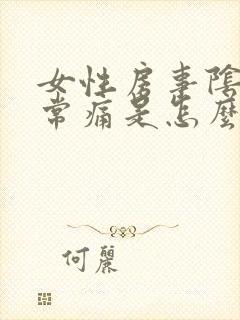 女性房事陰
常痛是怎麼
何麗